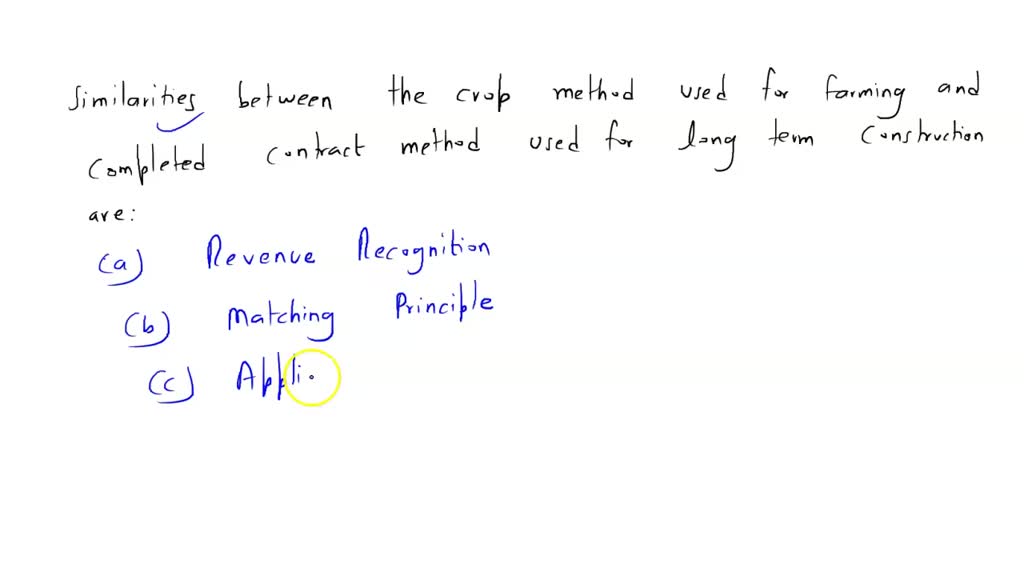 Similarities between the crop method used for farming and
completed contract method used for long term construction
are:
(a) Revenue Recognition
(b) Matching Principle
(c) Appli